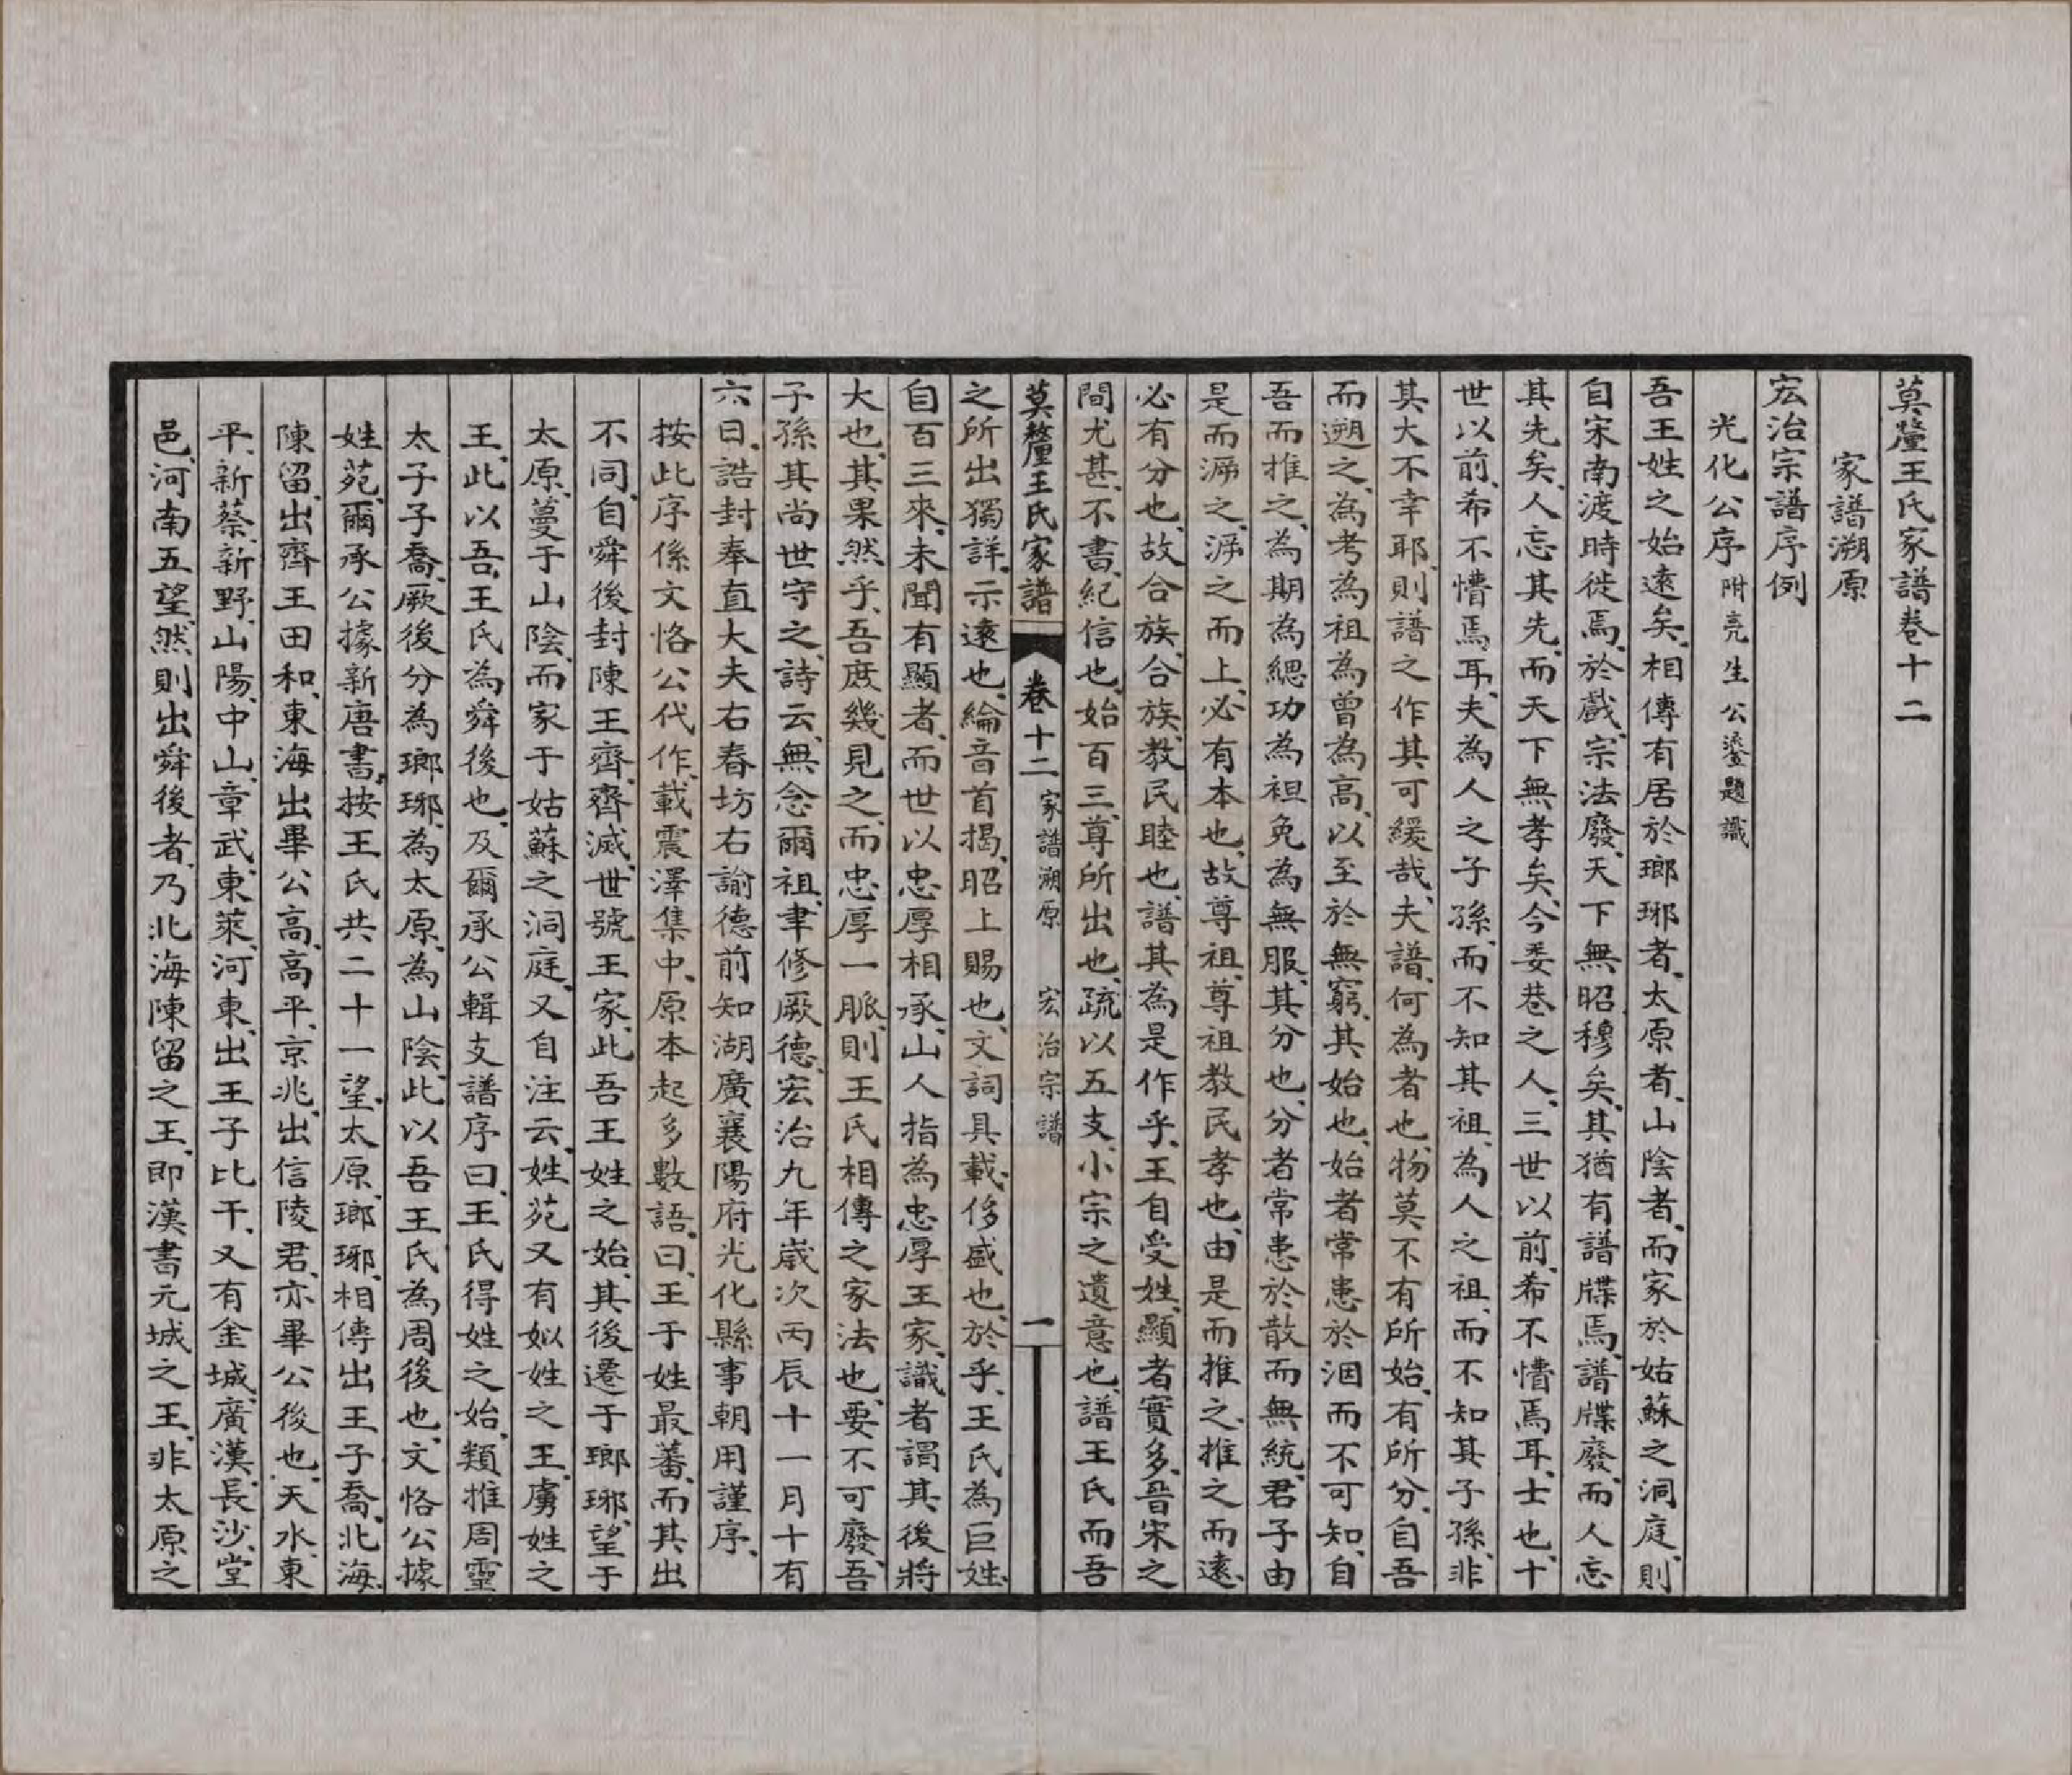 莫釐王氏家譜卷十二
家譜溯原
宏治宗譜序例
光化公序附亮生公鎏題識
吾王姓之始遠矣、相傳有居於瑯琊者、太原者、山陰者、而家於姑蘇之洞庭、則
自宋南渡時徙焉、於戲、宗法廢、天下無昭穆矣、其猶有譜牒焉、譜牒廢、而人忘
其先矣、人忘其先、而天下無孝矣、今委巷之人、三世以前、希不懵焉耳、士也、十
世以前、希不懵焉耳、夫為人之子孫、而不知其祖、為人之祖、而不知其子孫、非
其大不幸耶、則譜之作其可緩哉、夫譜、何為者也、物莫不有所始、有所分、自吾
而遡之、為考為祖為曾為高、以至於無窮、其始也、始者常患於洇而不可知、自
吾而推之、為期為緦功為袒免為無服、其分也、分者常患於散而無統、君子由
是而泝之、泝之而上、必有本也、故尊祖、尊祖教民孝也、由是而推之、推之而遠、
必有分也、故合族、合族、教民睦也、譜其為是作乎、王自受姓、顯者實多、晉宋之
間尤甚、不書、紀信也、始百三、尊所出也、疏以五支、小宗之遺意也、譜王氏而吾
莫釐王氏家譜 卷十二 家譜溯原 宏治宗譜 一
之所出獨詳、示遠也、綸音首揭、昭上賜也、文詞具載、侈盛也、於乎、王氏為巨姓、
自百三來、未聞有顯者、而世以忠厚相承、山人指為忠厚王家、識者謂其後將
大也、其果然乎、吾庶幾見之、而忠厚一脈、則王氏相傳之家法也、要不可廢、吾
子孫其尚世守之、詩云、無念爾祖、聿修厥德、宏治九年歲次丙辰十一月十有
六日、誥封奉直大夫右春坊右諭德前知湖廣襄陽府光化縣事朝用謹序、
按此序係文恪公代作、載震澤集中、原本起多數語、曰、王于姓最蕃、而其出
不同、自舜後封陳王齊、齊滅、世號王家、此吾王姓之始、其後遷于瑯琊、望于
太原、蔓于山陰、而家于姑蘇之洞庭、又自注云、姓苑又有姒姓之王、虜姓之
王、此以吾王氏為舜後也、及爾承公輯支譜序曰、王氏得姓之始、類推周靈
太子子喬、厥後分為瑯琊、為太原、為山陰、此以吾王氏為周後也、文恪公據
姓苑、爾承公據新唐書、按王氏共二十一望、太原瑯琊、相傳出王子喬、北海
陳留、出齊王田和、東海出畢公高、高平、京兆、出信陵君、亦畢公後也、天水、東
平、新蔡、新野、山陽、中山、章武、東萊、河東、出王子比干、又有金城、廣漢、長沙、堂
邑、河南五望、然則出舜後者、乃北海陳留之王、即漢書元城之王、非太原之